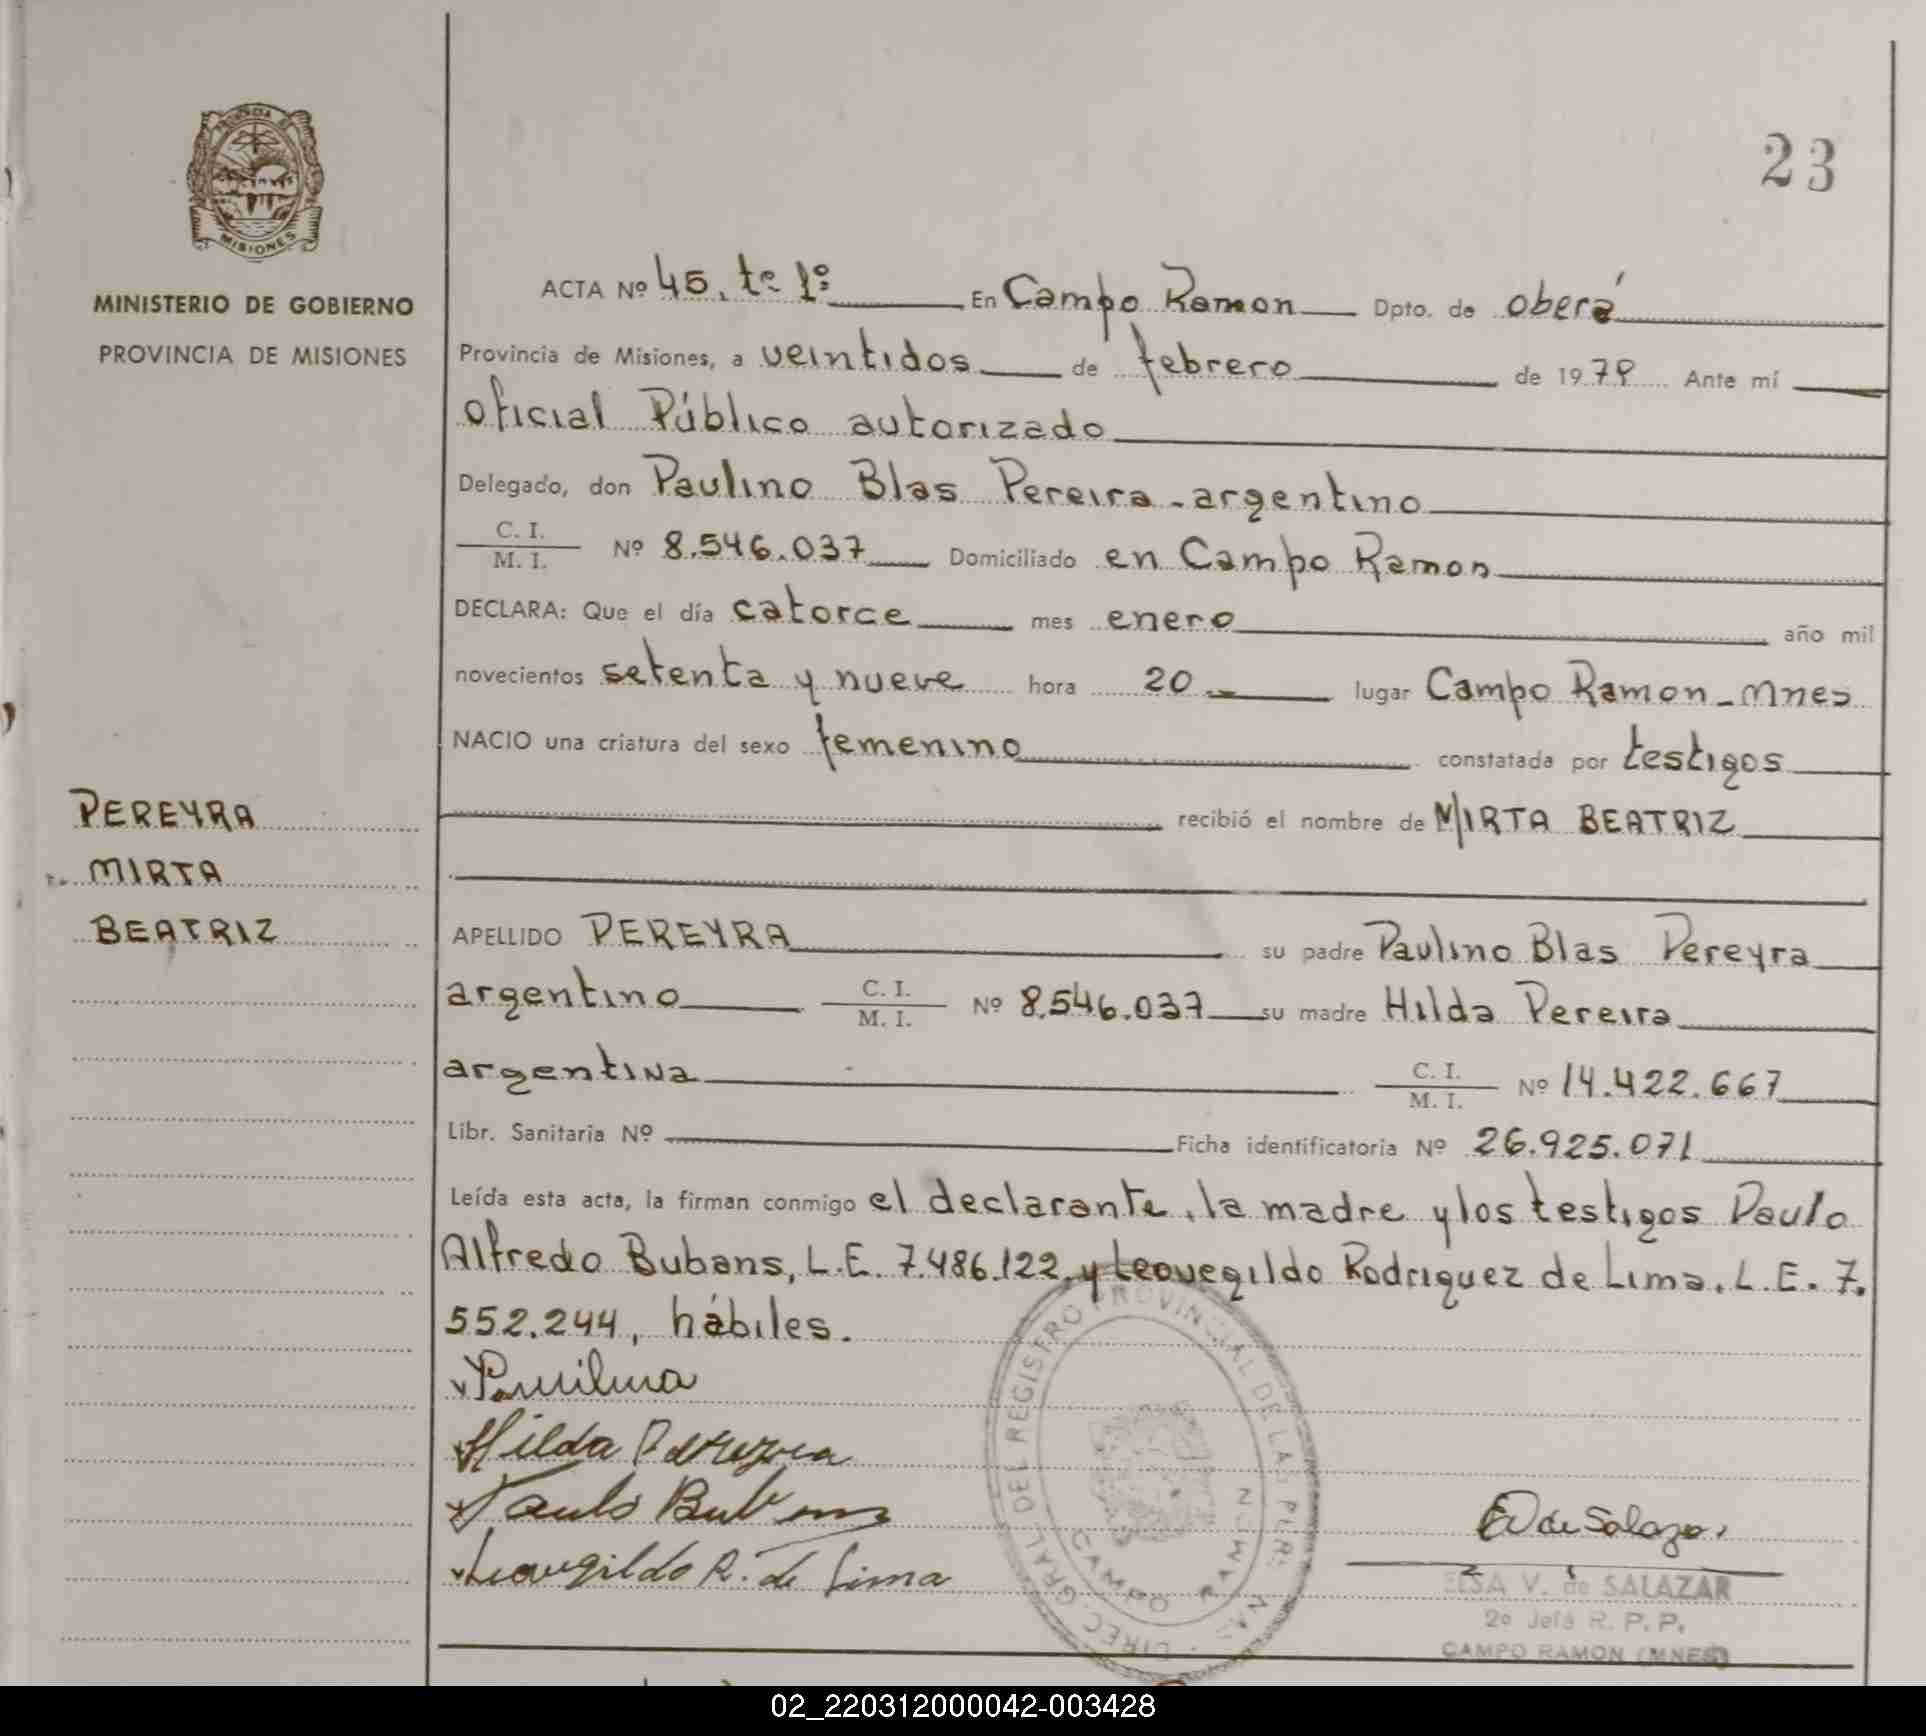 23
PROVINCIA DE
MISIONES
MINISTERIO DE GOBIERNO
PROVINCIA DE MISIONES
PEREYRA
MIRTA
BEATRIZ
ACTA Nº 45, tº 1º En Campo Ramon Dpto. de oberá
Provincia de Misiones, a veintidos de febrero de 1979 Ante mí
oficial Público autorizado
Delegado, don Paulino Blas Pereira - argentino
C. I.
M. I. Nº 8.546.037 Domiciliado en Campo Ramon
DECLARA: Que el día catorce mes enero año mil
novecientos setenta y nueve hora 20 lugar Campo Ramon - Mnes
NACIO una criatura del sexo femenino constatada por testigos
recibió el nombre de MIRTA BEATRIZ
APELLIDO PEREYRA su padre Paulino Blas Pereyra
argentino C. I. M. I. Nº 8.546.037 su madre Hilda Pereira
argentina C. I. M. I. Nº 14.422.667
Libr. Sanitaria Nº Ficha identificatoria Nº 26.925.071
Leída esta acta, la firman conmigo el declarante, la madre y los testigos Paulo
Alfredo Bubans, L.E. 7.486.122, y Leovegildo Rodriguez de Lima, L.E. 7.
552.244, hábiles.
Hilda Pereyra
Paulo Bubans
Leovegildo R. de Lima
DIREC. GRAL. DEL REGISTRO PROVINCIAL DE LAS PERSONAS
CAMPO RAMON
EV de Salazar
ELSA V. de SALAZAR
2º Jefa R. P. P.
CAMPO RAMON (MNES)
02_220312000042-003428